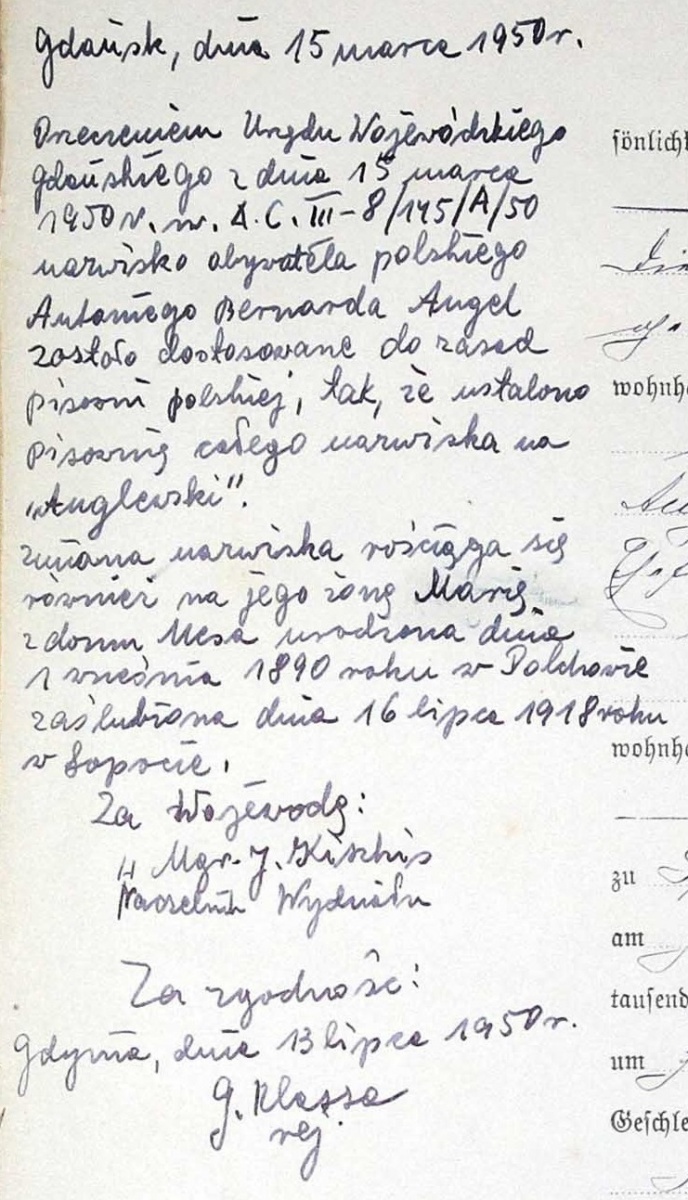 Gdańsk, dnia 15 marca 1950 r.
Orzeczeniem Urzędu Wojewódzkiego
Gdańskiego z dnia 15 marca
1950 r. nr. A. C. III-8/145/A/50
nazwisko obywatela polskiego
Antoniego Bernarda Angel
zostało dostosowane do zasad
pisowni polskiej, tak, że ustalono
pisownię całego nazwiska na
„Anglewski".
Zmiana nazwiska rościąga się
również na jego żonę Marię
z domu Mesa urodzona dnia
1 września 1890 roku w Połchowie
zaślubiona dnia 16 lipca 1918 roku
w Sopocie.
Za Wojewodę:
Mgr. J.
Naczelnik Wydziału
Za zgodność:
Gdynia, dnia 13 lipca 1950 r.
G. Klassa
rej.
sönlichk
wohnha
wohnha
zu
am
tausend
um
Geschle